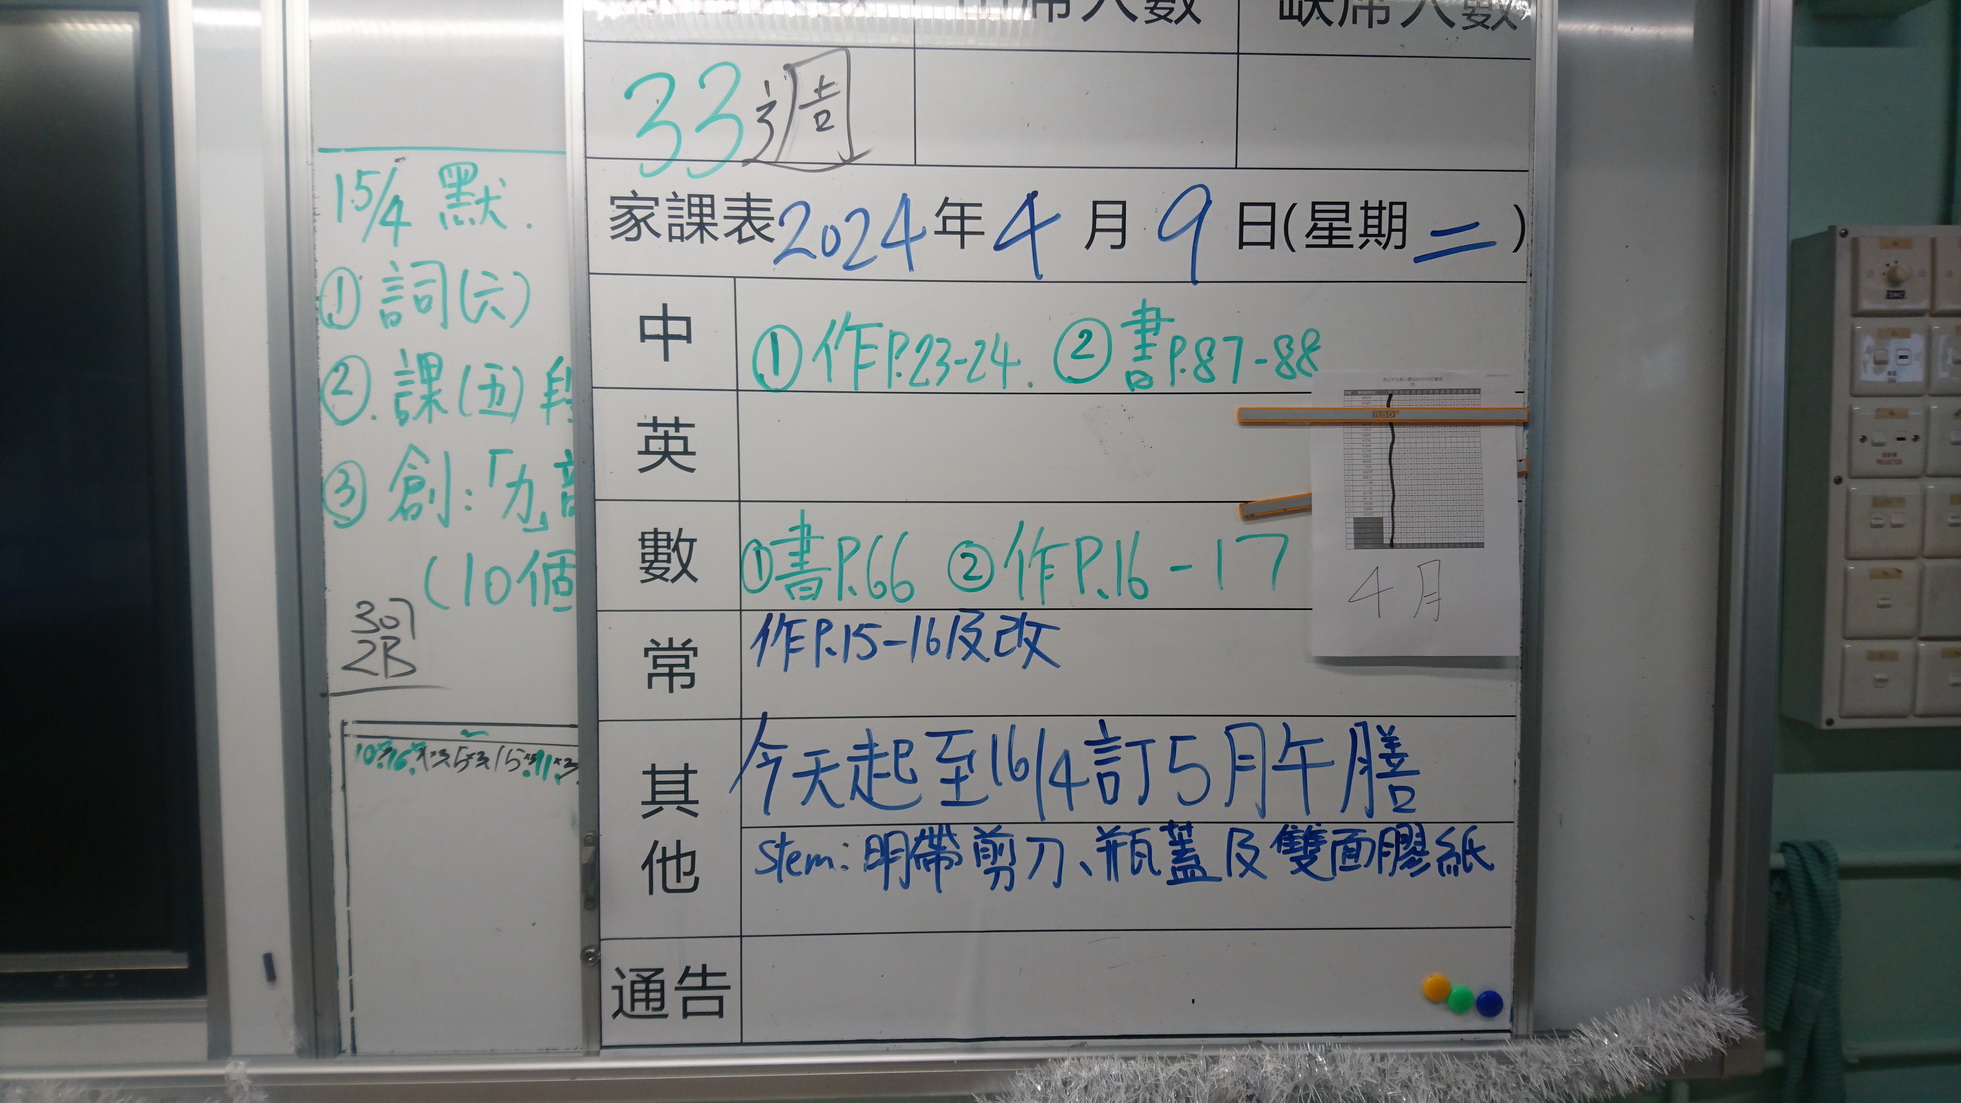 出席人數
缺席人數
33週
家課表2024年4月9日(星期二)
中
①作P.23-24. ②書P.87-88
英
數
①書P.66 ②作P.16-17
常
作P.15-16及改
其他
今天起至16/4訂5月午膳
Stem:明帶剪刀、瓶蓋及雙面膠紙
通告
15/4 默.
①詞(六)
②.課(五)段
③創:「力」部
(10個
307
2B
4月